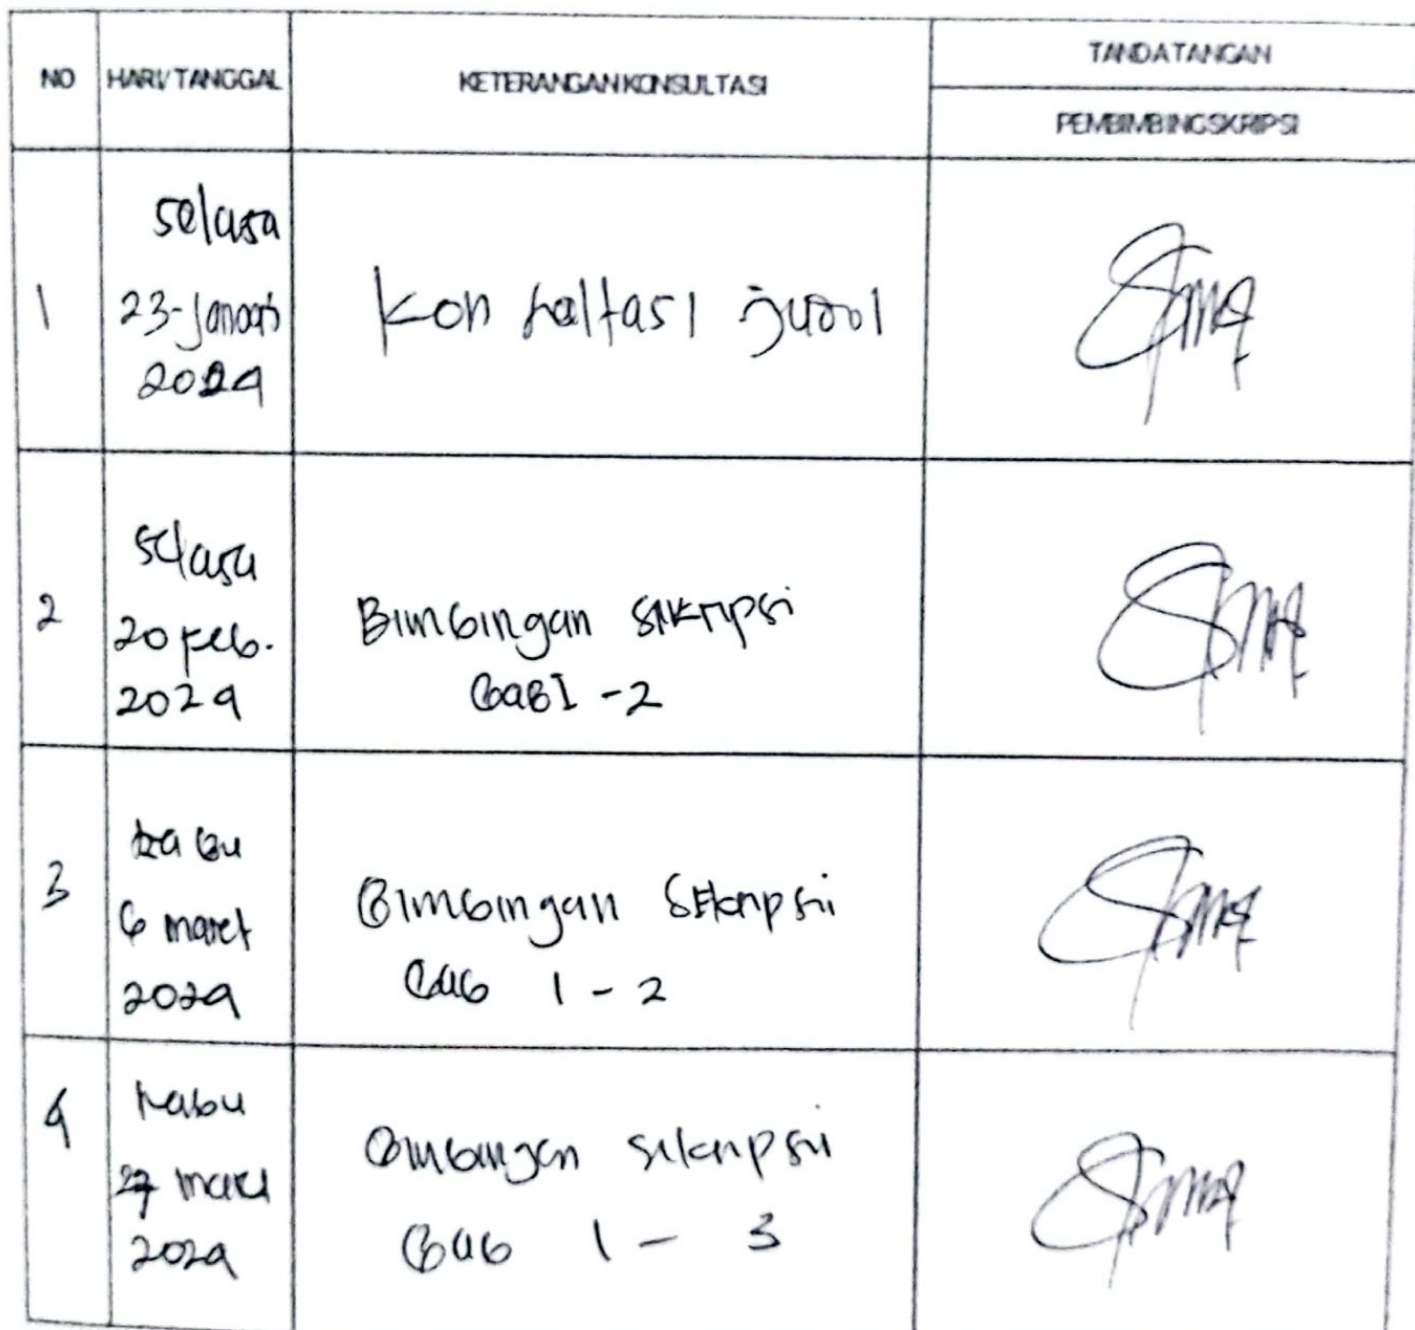 NO
HARI/TANGGAL
KETERANGAN KONSULTASI
TANDA TANGAN
PEMBIMBING SKRIPSI
1
Selasa
23-Januari
2024
Konsultasi judul
2
Selasa
20 Feb.
2024
Bimbingan Skripsi
Bab I - 2
3
Rabu
6 maret
2024
Bimbingan Skripsi
Bab 1 - 2
4
Rabu
27 maret
2024
Bimbingan Skripsi
Bab 1 - 3